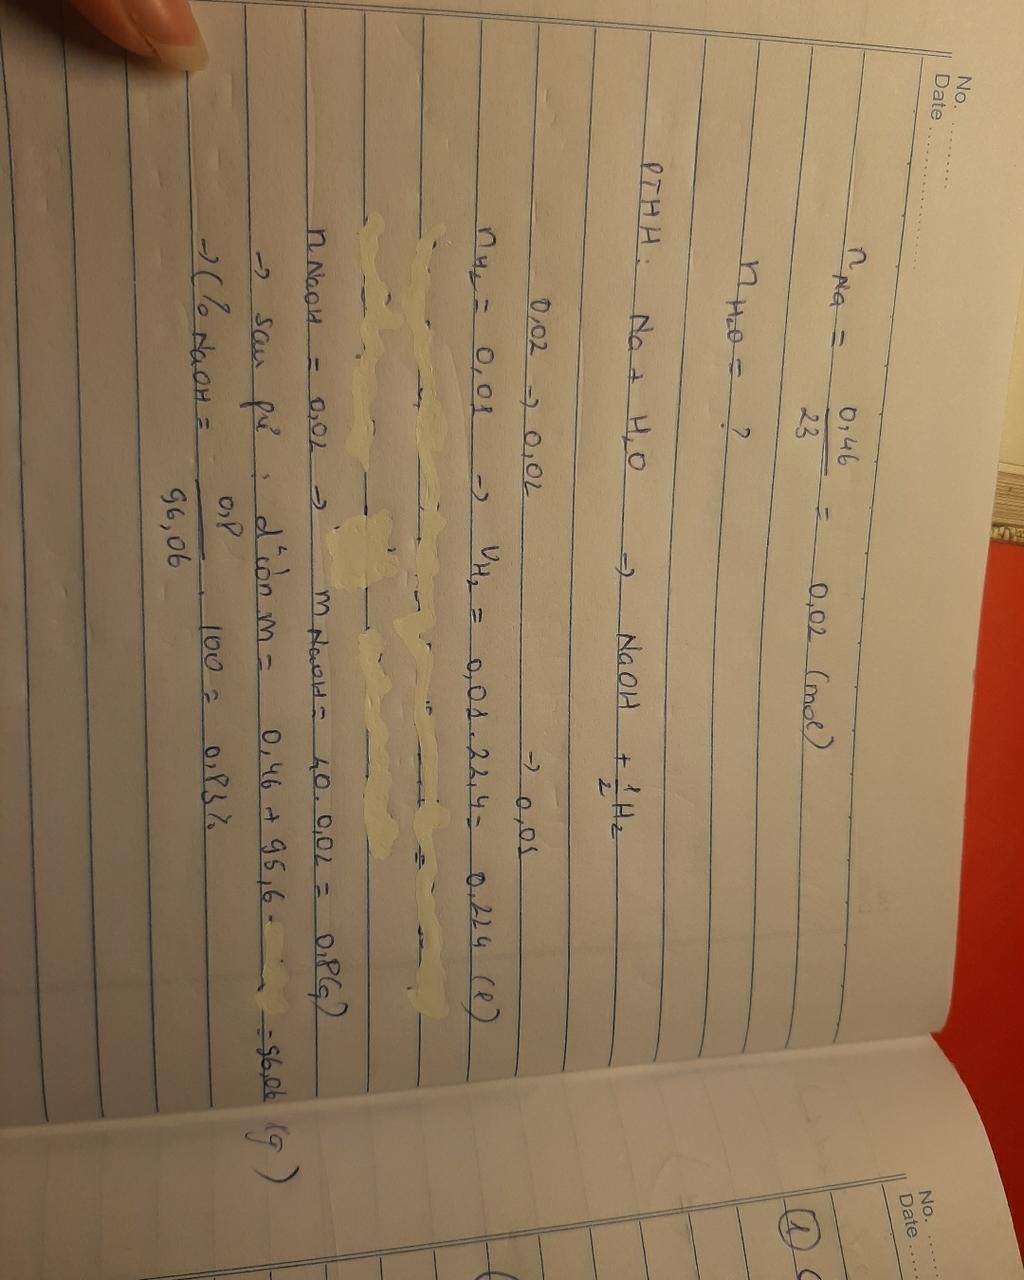 No. ..........
Date ....................
n Na = 0,46 / 23 = 0,02 (mol)
n H₂O = ?
PTHH: Na + H₂O → NaOH + 1/2 H₂
0,02 → 0,02 → 0,01
n H₂ = 0,01 → V H₂ = 0,01 . 22,4 = 0,224 (l)
n NaOH = 0,02 → m NaOH = 40 . 0,02 = 0,8 (g)
→ sau pứ : d² còn m = 0,46 + 95,6 = 96,06 (g)
→ C% NaOH = 0,8 / 96,06 . 100 = 0,83%
No. ....
Date ....
①